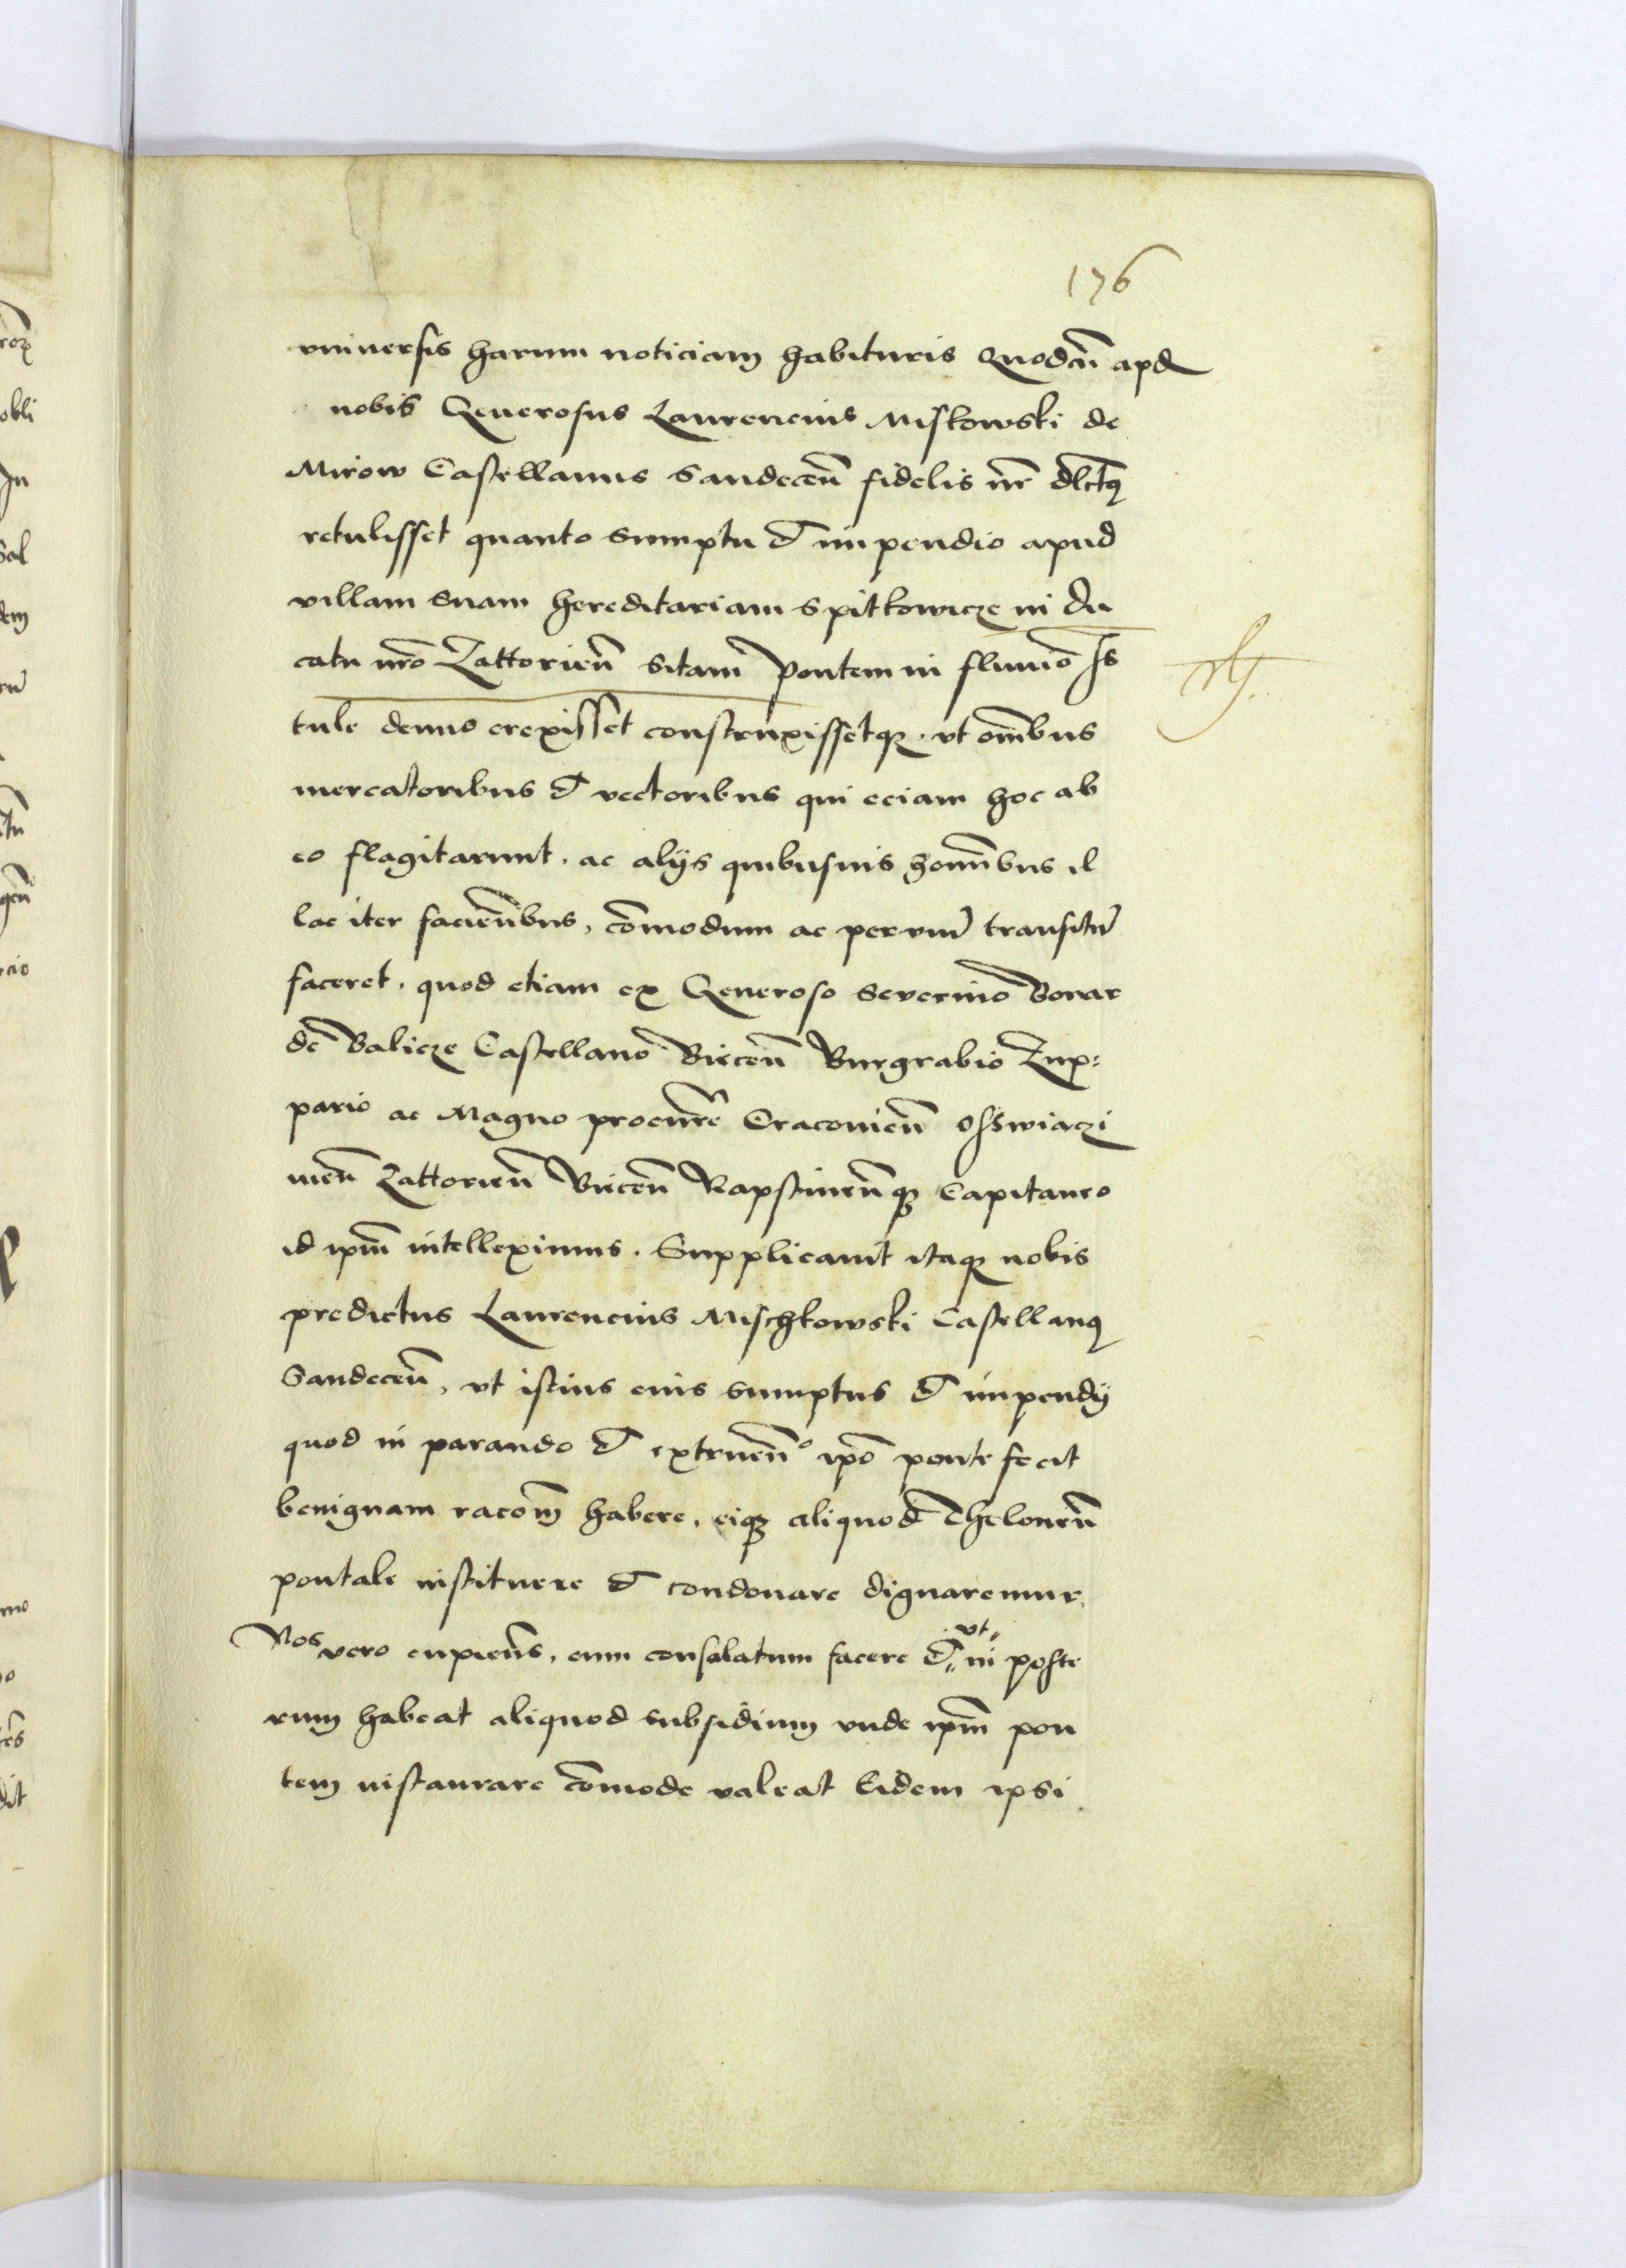 176
vniuersis harum noticiam habituris Quodcū apd
nobis Generosus Laurencius Miskowski de
Mirow Castellanus Sandeceñ fidelis nr̄ dlctꝰ
retulisset quanto sumptu & impendio apud
villam suam hereditariam Spitkowicze in du
catu nr̄o Zattorieñ sitam pontem in fluuio Is
tule denuo erexisset construxissetqꝫ. vt oīnbus
mercatoribus & vectoribus qui eciam hoc ab
eo flagitarunt. ac alijs quibusuis hoīnibus il
lac iter facieñbus, cōmodum ac peruiū transitū
faceret. quod etiam ex Generoso Seuerino Bonar
de Balicze Castellano Bieceñ Burgrabio Zup:
pario ac Magno procur̄re Cracouieñ Osswiaczi
meñ Zattorieñ Bieceñ Rapstineñqꝫ Capitaneo
id ipm̄ intelleximus. Supplicauit itaqꝫ nobis
predictus Laurencius Mischkowski Castellanꝰ
Sandeceñ, vt istius eius sumptus & impendij
quod in parando & extrueñº ip̄o ponte fecit
benignam racōm̄ habere. eiqꝫ aliquod Theloneū
pontale instituere & condonare dignaremur.
Nos vero cupieñs, eum consolatum facere & vt in poste
rum habeat aliquod subsidium vnde ipm̄ pon
tem instaurare cōmode valeat Eidem ipsi